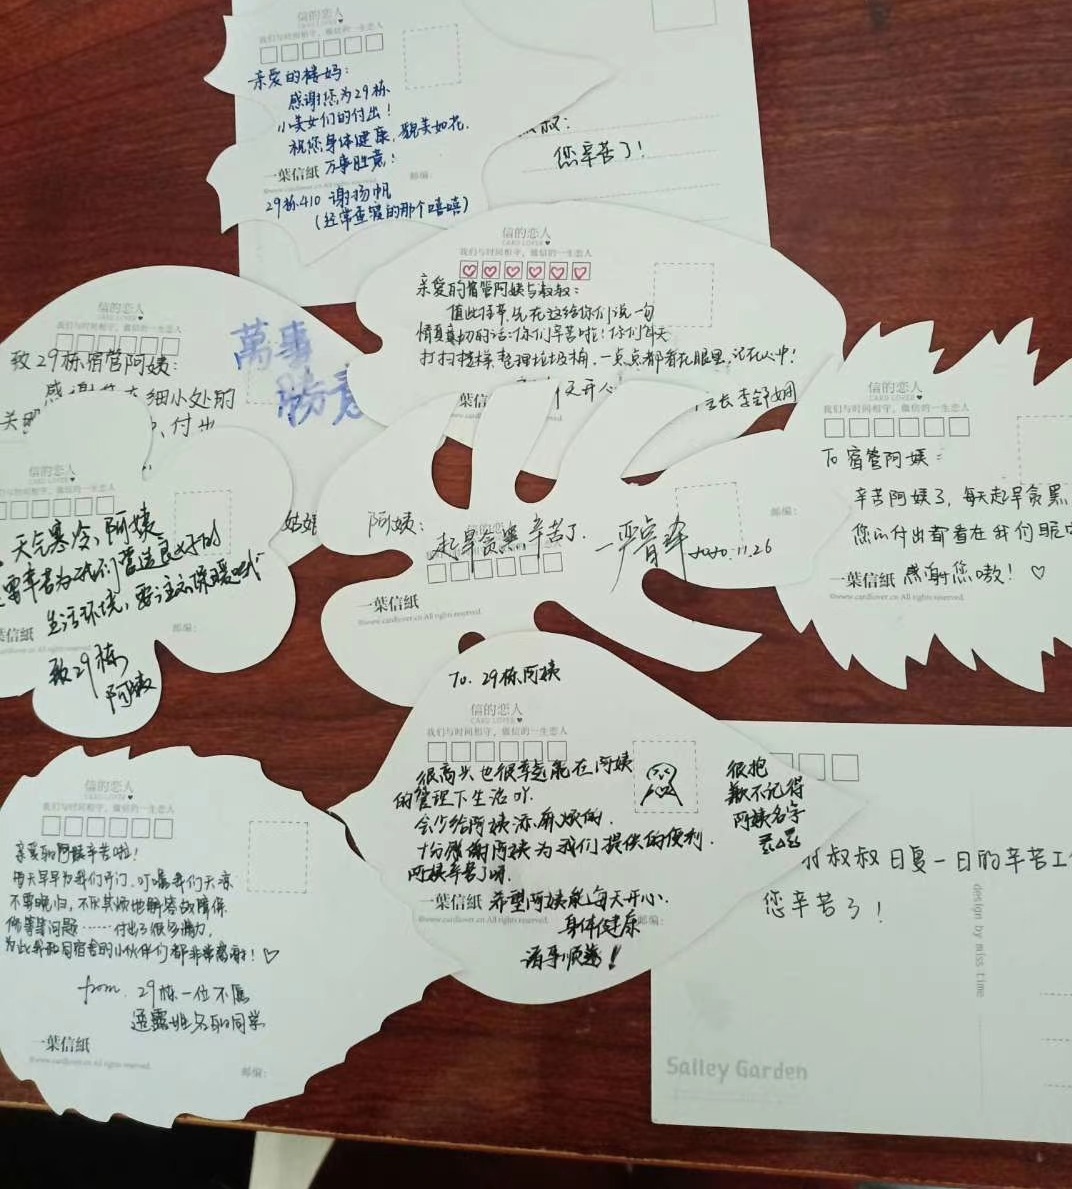 信的恋人
CARD LOVER
我们与时间相守，做信的一生恋人
亲爱的楼妈：
感谢您为29栋
小美女们的付出！
祝您身体健康，貌美如花，
万事胜意！
一葉信紙
邮编：
©www.cardlover.cn All rights reserved.
29栋410 谢扬帆
(经常查寝的那个嘻嘻)
叔：
您辛苦了！
信的恋人
CARD LOVER
我们与时间相守，做信的一生恋人
亲爱的宿管阿姨与叔叔：
值此佳节，先在这给你们说一句
情真真切的话：你们辛苦啦！你们每天
打扫楼梯，整理垃圾桶，一点点都看在眼里，记在心中！
天开心
一葉信
李舒娴
信的恋人
CARD LOVER
我们与时间相守，做信的一生恋人
致29栋宿管阿姨：
细小处的
付出
萬事
勝意
信的恋人
CARD LOVER
我们与时间相守，做信的一生恋人
天气寒冷，阿姨
辛苦为我们营造良好的
生活环境，要注意保暖哦
葉信紙
邮编：
All rights reserved.
致29栋
阿姨
阿姨：
起早贪黑，辛苦了.
2020.11.26
一葉信紙
邮编：
©www.cardlover.cn All rights reserved.
信的恋人
CARD LOVER
我们与时间相守，做信的一生恋人
To 宿管阿姨：
辛苦阿姨了，每天起早贪黑
您的付出都看在我们眼中
一葉信紙 感谢您嗷！♡
©www.cardlover.cn All rights reserved.
To. 29栋阿姨
信的恋人
CARD LOVER
我们与时间相守，做信的一生恋人
很高兴也很幸运能在阿姨
的管理下生活吖.
会少给阿姨添麻烦的.
十分感谢阿姨为我们提供的便利.
阿姨辛苦了呀.
一葉信紙 希望阿姨能每天开心.
©www.cardlover.cn All rights reserved.
邮编：
身体健康
诸事顺遂！
很抱
歉不记得
阿姨名字
信的恋人
CARD LOVER
我们与时间相守，做信的一生恋人
亲爱的阿姨辛苦啦！
每天早早为我们开门，叮嘱我们天凉
不要晚归，不厌其烦地解答故障保
修等等问题……付出了很多精力，
为此我和同宿舍的小伙伴们都非常感谢！♡
from. 29栋一位不愿
透露姓名的同学
一葉信紙
©www.cardlover.cn All rights reserved.
邮编：
叔叔日复一日的辛苦工
您辛苦了！
design by miss time
Salley Garden